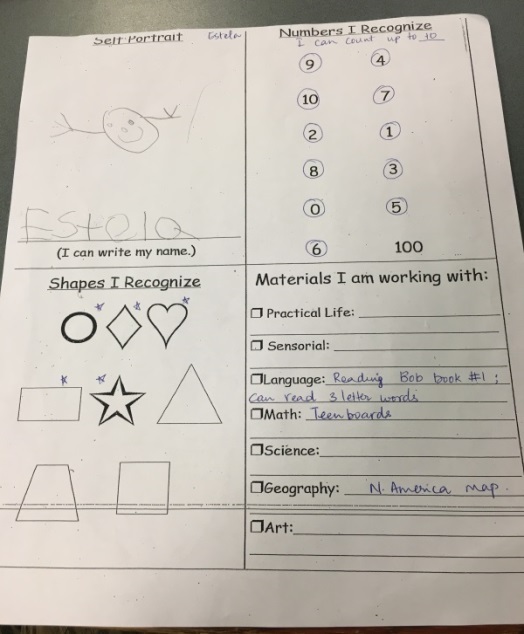 Self Portrait
Estela
Estela
(I can write my name.)
Numbers I Recognize
I can count up to 10
9 4
10 7
2 1
8 3
0 5
6 100
Shapes I Recognize
Materials I am working with:
Practical Life:
Sensorial:
Language: Reading Bob book #1;
can read 3 letter words
Math: Teen boards
Science:
Geography: N. America map.
Art: